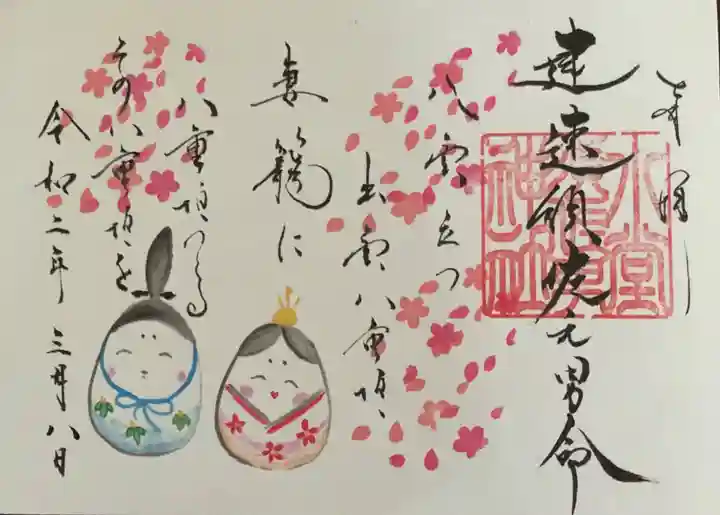 奉拝
建速須佐之男命
八雲立つ
出雲八重垣
妻籠に
八重垣つくる
その八重垣を
令和二年三月八日